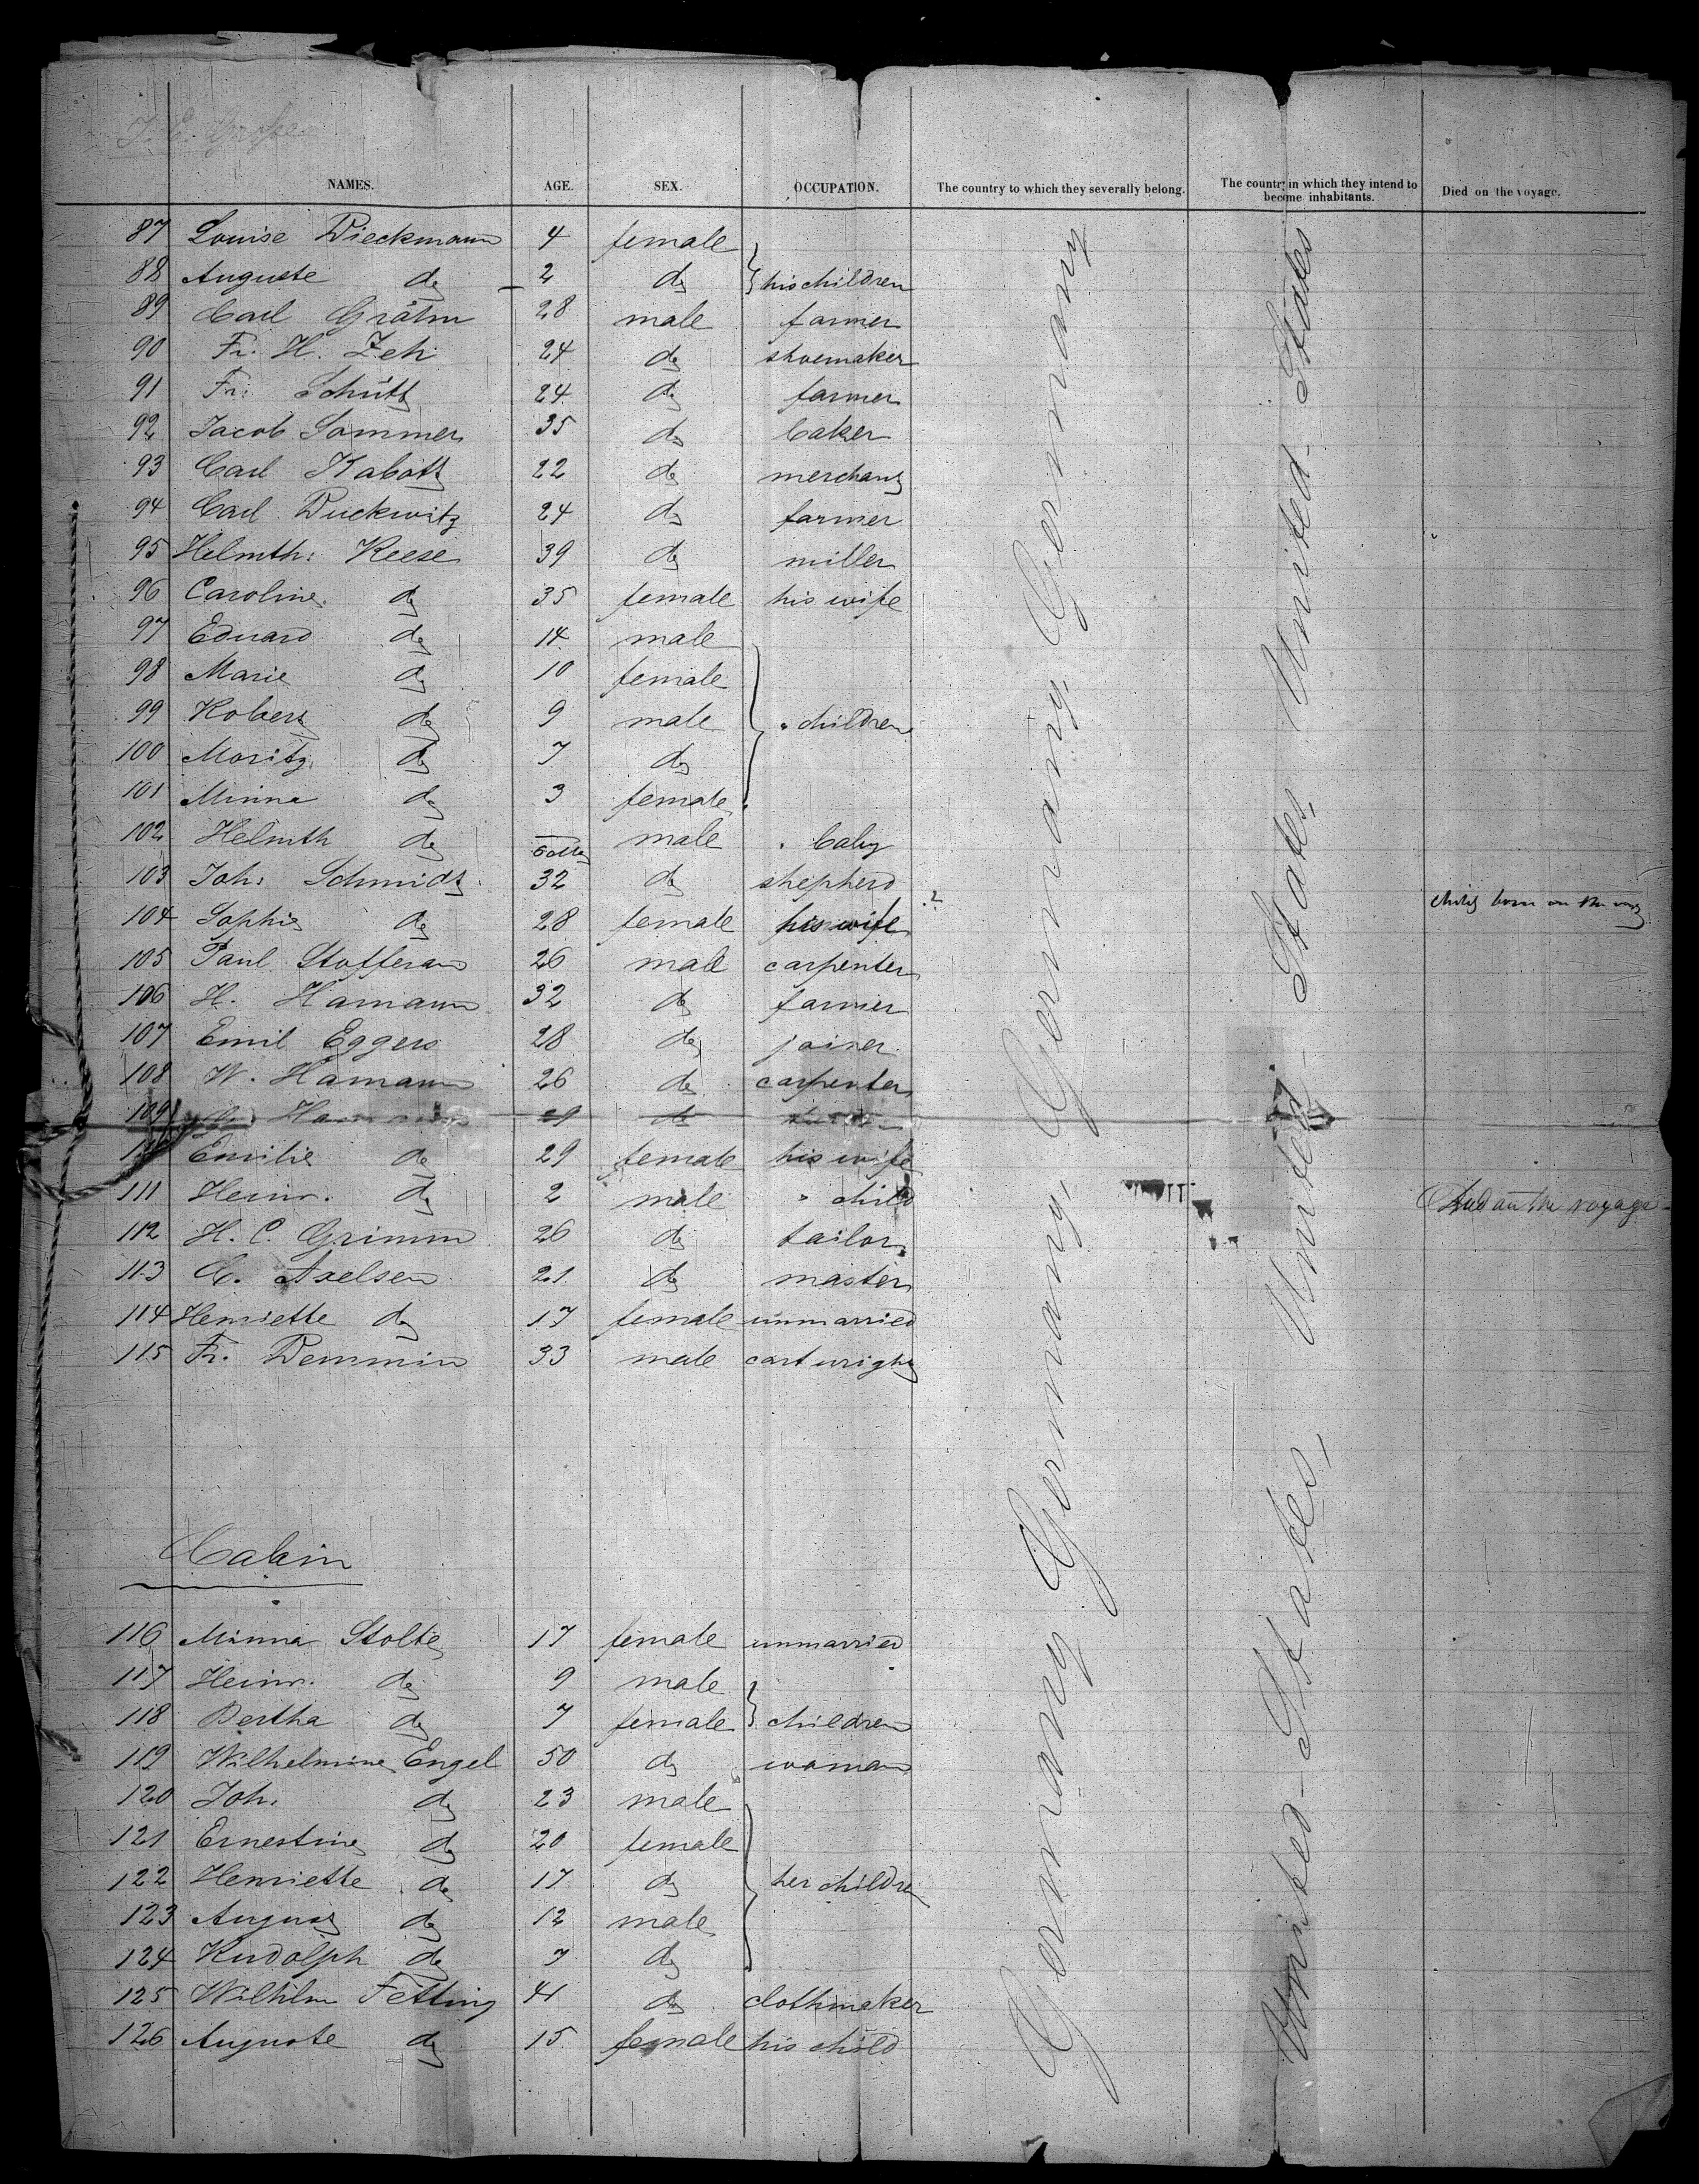 NAMES. AGE. SEX. OCCUPATION. The country to which they severally belong. The country in which they intend to become inhabitants. Died on the voyage.
87 Louise Dieckmann 4 female
88 Auguste do 2 do his children
89 Carl Grähn 28 male farmer
90 Fr. H. Zeh 24 do shoemaker
91 Fr: Schütt 24 do farmer
92 Jacob Sommer 35 do baker
93 Carl Kabott 22 do merchant
94 Carl Duckwitz 24 do farmer
95 Helmth: Reese 39 do miller
96 Caroline do 35 female his wife
97 Eduard do 14 male
98 Marie do 10 female
99 Robert do 9 male " children
100 Moritz do 7 do
101 Minna do 3 female
102 Helmth do male " baby
103 Joh: Schmidt 32 do shepherd
104 Sophie do 28 female his wife child born on the voy
105 Paul Stofferan 26 male carpenter
106 H. Hamann 32 do farmer
107 Emil Eggers 28 do joiner
108 W. Hamann 26 do carpenter
109 do
110 Emilie do 29 female his wife
111 Heinr. do 2 male " child Died on the voyage
112 H. C. Grimm 26 do tailor
113 C. Axelsen 21 do master
114 Henriette do 17 female unmarried
115 Fr. Demmin 33 male cartwright
Cabin
116 Minna Stolte 17 female unmarried
117 Heinr. do 9 male
118 Bertha do 7 female children
119 Wilhelmine Engel 50 do woman
120 Joh. do 23 male
121 Ernestine do 20 female
122 Henriette do 17 do her children
123 August do 12 male
124 Rudolph do 7 do
125 Wilhlm Fetting 41 do clothmaker
126 Auguste do 15 female his child
Germany Germany, Germany, Germany, Germany
United-States, United-States, United-States